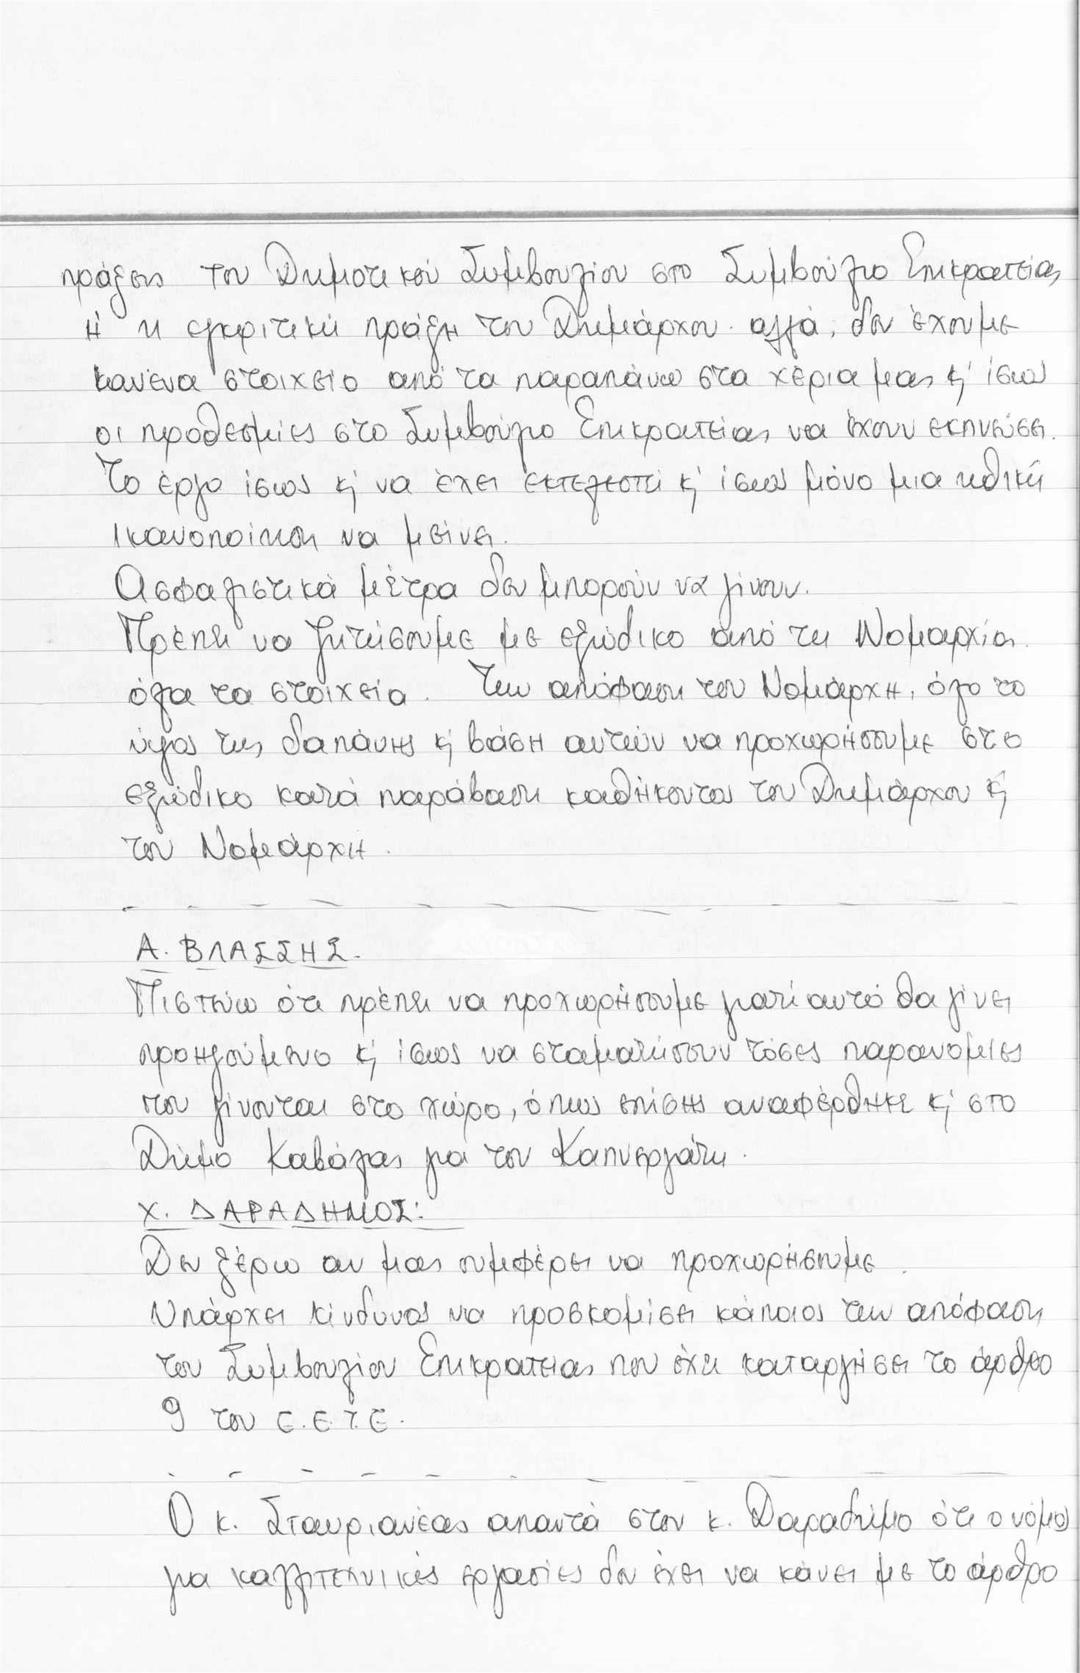 πράξεις του Δημοτικού Συμβουλίου στο Συμβούλιο Επικρατείας
ή η εγκριτική πράξη του Δημάρχου. αλλά, δεν έχουμε
κανένα στοιχείο από τα παραπάνω στα χέρια μας κ' ίσως
οι προθεσμίες στο Συμβούλιο Επικρατείας να έχουν εκπνεύσει.
Το έργο ίσως κ' να έχει εκτελεστεί κ' ίσως μόνο μια ηθική
ικανοποίηση να μείνει.
Ασφαλιστικά μέτρα δεν μπορούν να γίνουν.
Πρέπει να ζητήσουμε με εξώδικο από τη Νομαρχία
όλα τα στοιχεία. Την απόφαση του Νομάρχη, όλο το
ύψος της δαπάνης κ' βάση αυτών να προχωρήσουμε στο
εξώδικο κατά παράβαση καθήκοντος του Δημάρχου κ'
του Νομάρχη.
Α. ΒΛΑΣΣΗΣ.
Πιστεύω ότι πρέπει να προχωρήσουμε γιατί αυτό θα γίνει
προηγούμενο κ' ίσως να σταματήσουν τόσες παρανομίες
που γίνονται στο χώρο, όπως επίσης αναφέρθηκε κ' στο
Δήμο Καβάλας για τον Καπνεργάτη.
Χ. ΔΑΡΑΔΗΜΟΣ:
Δεν ξέρω αν μας συμφέρει να προχωρήσουμε.
Υπάρχει κίνδυνος να προσκομίσει κάποιος την απόφαση
του Συμβουλίου Επικρατείας που έχει καταργήσει το άρθρο
9 του Ε.Ε.Τ.Ε.
Ο κ. Σταυριανέας απαντά στον κ. Δαραδήμο ότι ο νόμος
για καλλιτεχνικές εργασίες δεν έχει να κάνει με το άρθρο